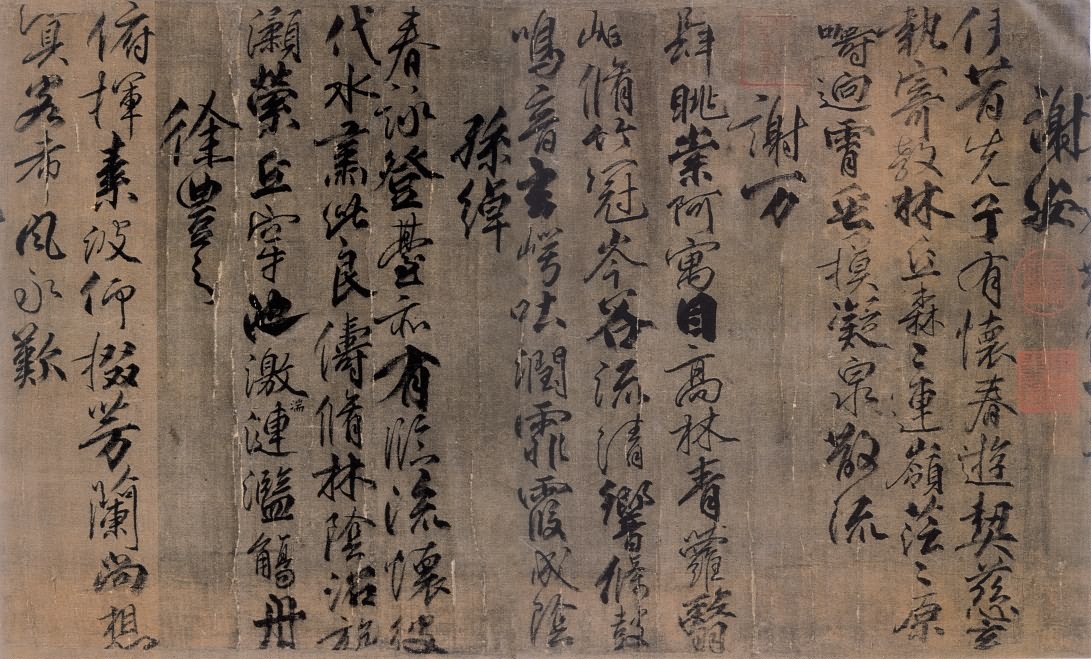 謝安
伊昔先子有懷春遊契茲言
執寄敖林丘森〻連嶺茫〻原
疇迥霄垂幙凝泉散流
謝万
肆眺崇阿寓目高林青蘿翳
岫脩竹冠岑谷流清響條鼓
鳴音玄崿吐潤霏霞成陰
孫綽
春詠登臺亦有臨流懷彼
伐木肅此良儔脩林陰沼旋
瀨縈丘穿池激湍連濫觴舟
徐豐之
俯揮素波仰掇芳蘭尚想
冥客希風永歎